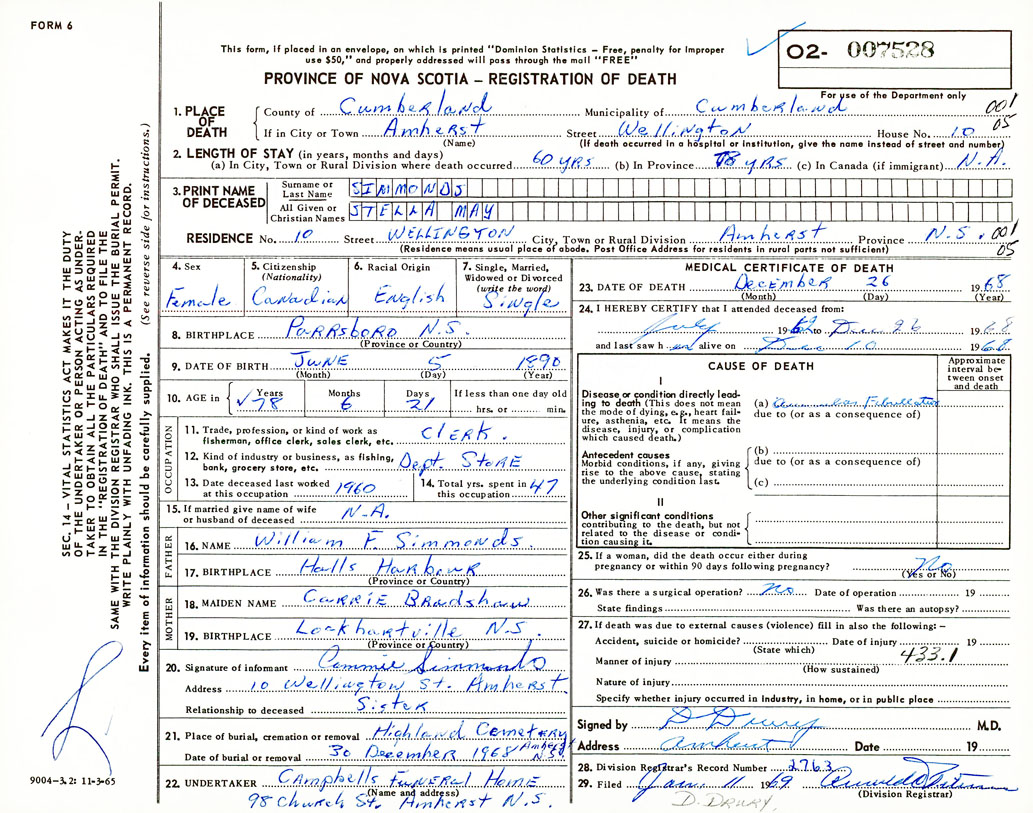 FORM 6
This form, if placed in an envelope, on which is printed "Dominion Statistics – Free, penalty for improper
use $50," and properly addressed will pass through the mail "FREE"
PROVINCE OF NOVA SCOTIA – REGISTRATION OF DEATH
O2- 007528
For use of the Department only
SEC. 14 – VITAL STATISTICS ACT MAKES IT THE DUTY
OF THE UNDERTAKER OR PERSON ACTING AS UNDER-
TAKER TO OBTAIN ALL THE PARTICULARS REQUIRED
IN THE "REGISTRATION OF DEATH" AND TO FILE THE
SAME WITH THE DIVISION REGISTRAR WHO SHALL ISSUE THE BURIAL PERMIT.
WRITE PLAINLY WITH UNFADING INK. THIS IS A PERMANENT RECORD.
Every item of information should be carefully supplied. (See reverse side for instructions.)
1. PLACE OF DEATH
County of Cumberland Municipality of Cumberland 001
If in City or Town Amherst Street Wellington House No. 10 05
(Name) (If death occurred in a hospital or institution, give the name instead of street and number)
2. LENGTH OF STAY (in years, months and days)
(a) In City, Town or Rural Division where death occurred 60 yrs (b) In Province 78 yrs (c) In Canada (if immigrant) N.A.
3. PRINT NAME OF DECEASED
Surname or Last Name SIMMONDS
All Given or Christian Names STELLA MAY
RESIDENCE No. 10 Street WELLINGTON City, Town or Rural Division Amherst Province N.S. 001
(Residence means usual place of abode. Post Office Address for residents in rural parts not sufficient) 05
4. Sex Female
5. Citizenship (Nationality) Canadian
6. Racial Origin English
7. Single, Married, Widowed or Divorced (write the word) Single
8. BIRTHPLACE Parrsboro N.S.
(Province or Country)
9. DATE OF BIRTH June 5 1890
(Month) (Day) (Year)
10. AGE in Years 78 Months 6 Days 21 If less than one day old hrs. or min.
OCCUPATION
11. Trade, profession, or kind of work as fisherman, office clerk, sales clerk, etc. Clerk.
12. Kind of industry or business, as fishing, bank, grocery store, etc. Dept. Store
13. Date deceased last worked at this occupation 1960
14. Total yrs. spent in this occupation 47
15. If married give name of wife or husband of deceased N.A.
FATHER
16. NAME William F. Simmonds.
17. BIRTHPLACE Halls Harbour
(Province or Country)
MOTHER
18. MAIDEN NAME Carrie Bradshaw
19. BIRTHPLACE Lockhartville N.S.
(Province or Country)
20. Signature of informant Simmonds
Address 10 Wellington St. Amherst
Relationship to deceased Sister
21. Place of burial, cremation or removal Highland Cemetery
Date of burial or removal 30 December 1968 Amherst N.S.
22. UNDERTAKER Campbells Funeral Home
(Name and address)
98 Church St. Amherst N.S.
9004-3.2: 11-3-65
MEDICAL CERTIFICATE OF DEATH
23. DATE OF DEATH December 26 1968
(Month) (Day) (Year)
24. I HEREBY CERTIFY that I attended deceased from:
July 19 to Dec 26 1968
and last saw h er alive on Dec 10 1968
CAUSE OF DEATH
Approximate interval between onset and death
I
Disease or condition directly leading to death (This does not mean the mode of dying, e.g., heart failure, asthenia, etc. It means the disease, injury, or complication which caused death.)
(a) Fibrillation
due to (or as a consequence of)
Antecedent causes
Morbid conditions, if any, giving rise to the above cause, stating the underlying condition last.
(b)
due to (or as a consequence of)
(c)
II
Other significant conditions
contributing to the death, but not related to the disease or condition causing it.
25. If a woman, did the death occur either during
pregnancy or within 90 days following pregnancy? No
(Yes or No)
26. Was there a surgical operation? no Date of operation 19
State findings Was there an autopsy?
27. If death was due to external causes (violence) fill in also the following: –
Accident, suicide or homicide? Date of injury 19
(State which) 433.1
Manner of injury
(How sustained)
Nature of injury
Specify whether injury occurred in industry, in home, or in public place
Signed by D Drury M.D.
Address Amherst Date 19
28. Division Registrar's Record Number 2763
29. Filed Jan. 11 1969
(Division Registrar)
D. DRURY.